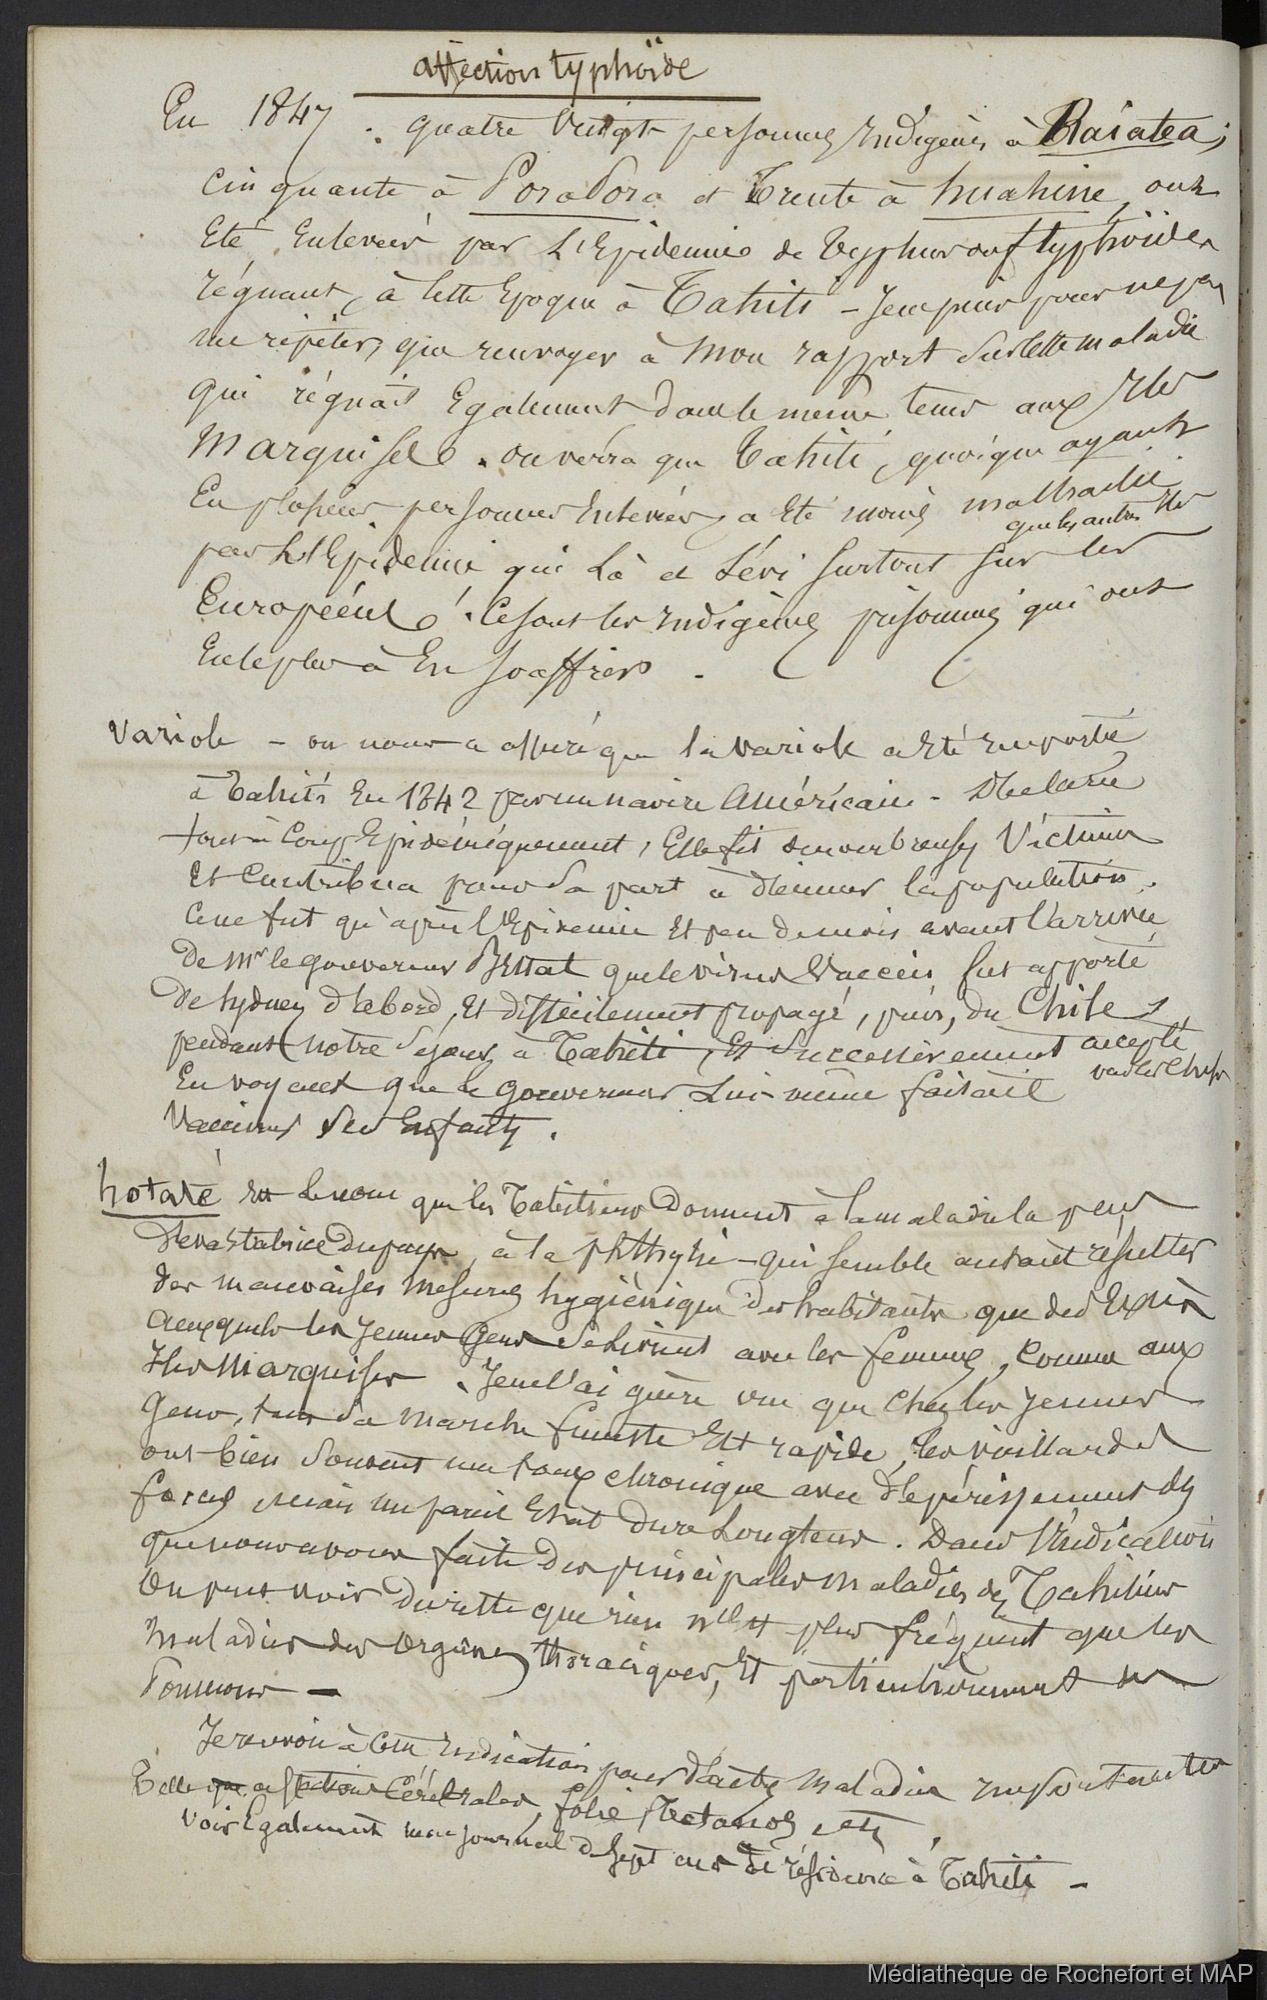 affection typhoïde
En 1847. quatre vingt personnes indigènes à Raiatea;
cinquante à Borabora et Trente à huahine, ont
été Enlevées par L'Epidémie de Typhus ou f typhoïdes
régnant, à cette Epoque à Tahiti - Je ne puis pour ne pas
me répéter, que renvoyer à Mon rapport sur cette maladie
qui régnait Egalement dans le même tems aux Iles
Marquises. on verra que Tahiti, quoique ayant
Eu plusieurs personnes Enlevées, a Eté moins maltraitée
que les autres Iles
par L'Epidémie qui Là a sévi surtout sur les
Européens. Ce sont les indigènes qui ont
Eu le plus à En souffrir.
Variole - on nous a assuré que la Variole a Eté importée
à Tahiti En 1842 par un navire Américain - Déclarée
tout à Coup Epidémiquement, Elle fit de nombreuses Victimes
Et Contribua pour sa part à diminuer la population.
Ce ne fut qu'après l'Epidémie Et peu de mois avant l'arrivée
De Mr le gouverneur Bruat que le virus Vaccin fut apporté
De Sydney d'abord, Et difficilement propagé, puis, du Chile
pendant notre séjour à Tahiti, Et Successivement accepté
par les Chefs
En voyant que le gouverneur Lui-même faisait
Vacciner ses Enfants.
hotaté Est le nom que les Tahitiens Donnent à la maladie la plus
Dévastatrice du pays, à la phthysie - qui semble autant résulter
des mauvaises mesures hygiènique des habitants que des Excès
auxquels les jeunes Gens se livrent avec les femmes, Comme aux
Iles Marquises. Je ne l'ai guère vue que chez les jeunes
Gens, tant sa marche funeste Est rapide, les vieillards
ont bien souvent une toux chronique avec dépérissement des
forces mais un pareil Etat dure Longtems. Dans l'indication
que nous avons faite des principales maladies des Tahitiens
On peut voir de suite que rien n'est plus fréquent que les
Maladies des Organes thoraciques, Et particulièrement des
Poumons -
Je renvoie à cette indication pour d'autres maladies importantes
Telle que affections Cérébrales, folie, Tetanos, etc,
Voir Egalement mon journal de Sept ans de résidence à Tahiti -
Médiathèque de Rochefort et MAP